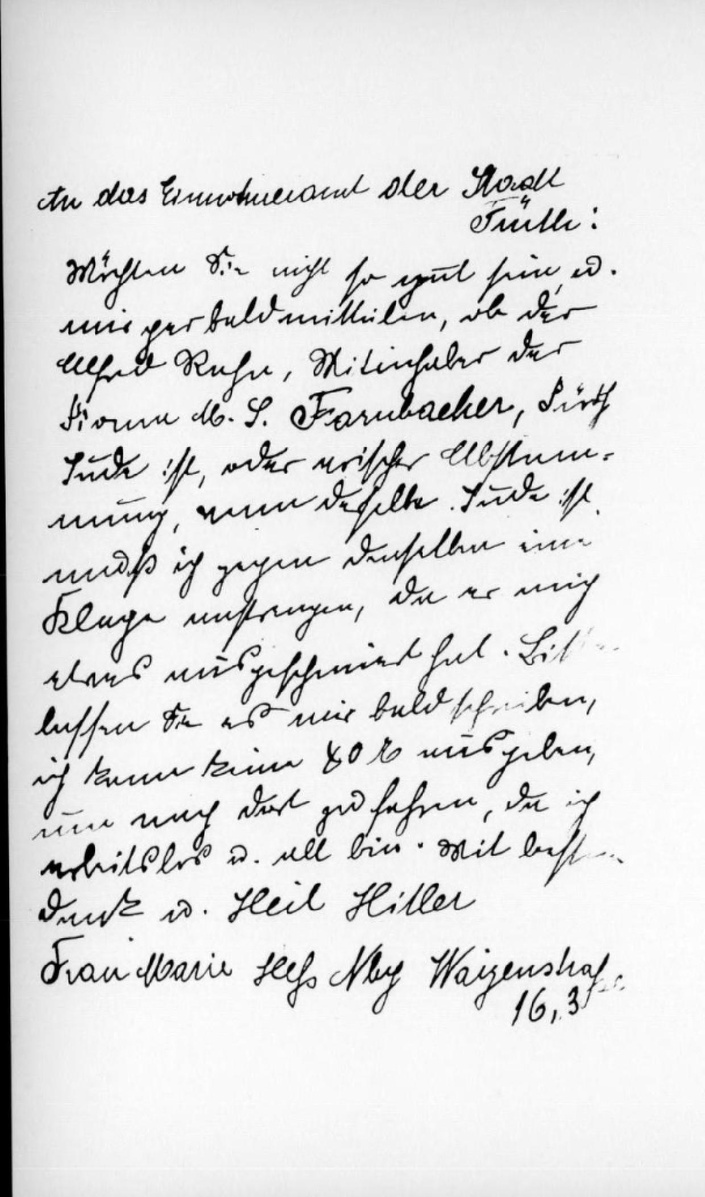 An das Einwohneramt der Stadt
Fürth:
Möchten Sie nicht so gut sein, u.
mir per bald mitteilen, ob der
Alfred Kuhn, Mitinhaber der
Firma M. S. Farnbacher, Fürth
Jude ist, oder arischer Abstam-
mung, wenn derselbe Jude ist,
muß ich gegen denselben eine
Klage anstrengen, da er mich
etwas ausgeschmiert hat. Bitte
lassen Sie es mir bald schreiben,
ich kann keine 40 ausgeben,
um nach dort zu fahren, da ich
arbeitslos u. alt bin. Mit best
Dank u. Heil Hitler
Frau Marie Heß Nbg Waizenstraße
16,3